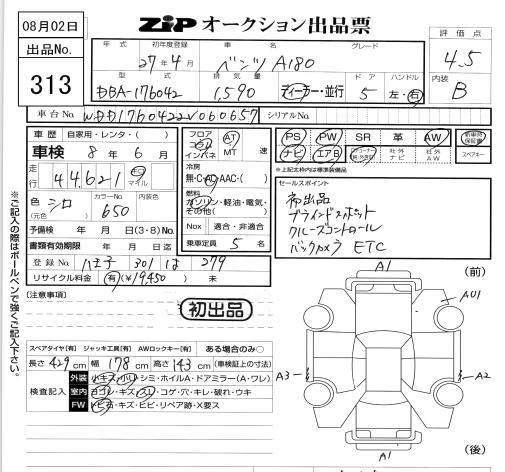 08月02日
ZIP オークション出品票
出品No.
313
評価点
4.5
内装
B
年式
初年度登録
車名
グレード
27年4月
ベンツ A180
型式
排気量
ドア
ハンドル
DBA-176042
1,590
ディーラー・並行
5
左・右
車台No.
WDD1760422V060657
シリアルNo.
車歴
自家用・レンタ・( )
車検
8年6月
走行
44,621
キロ
マイル
色
(元色)
シロ
カラーNo.
650
内装色
予備検
年 月 日(3・8)No.
書類有効期限
年 月 日迄
登録No.
八王子 301 は 279
リサイクル料金
有(¥19450)
未
フロア
コラム
インパネ
AT
MT
速
冷房
無・C・AC・AAC・( )
燃料
ガソリン・軽油・電気・
その他( )
Nox
適合・非適合
乗車定員
5
名
PS
PW
SR
革
AW
新車時保証書
ナビ
エアB
社外ナビ
社外AW
スペアキー
※上記太枠内は標準装備品
セールスポイント
初出品
ブラインドスポット
クルーズコントロール
バックカメラ ETC
[注意事項]
初出品
スペアタイヤ[有] ジャッキ工具[有] AWロックキー[有] ある場合のみ○
長さ 429 cm 幅 178 cm 高さ 143 cm (車検証上の寸法)
検査記入
外装
小キズ・小凹・シミ・ホイルA・ドアミラー(A・ワレ)
室内
ヨゴレ・キズ・スレ・コゲ・穴・キレ・破れ・ウキ
FW
トビ石・キズ・ヒビ・リペア跡・X要ス
A1
(前)
AU1
A3
A2
A1
(後)
※ご記入の際はボールペンで強くご記入下さい。